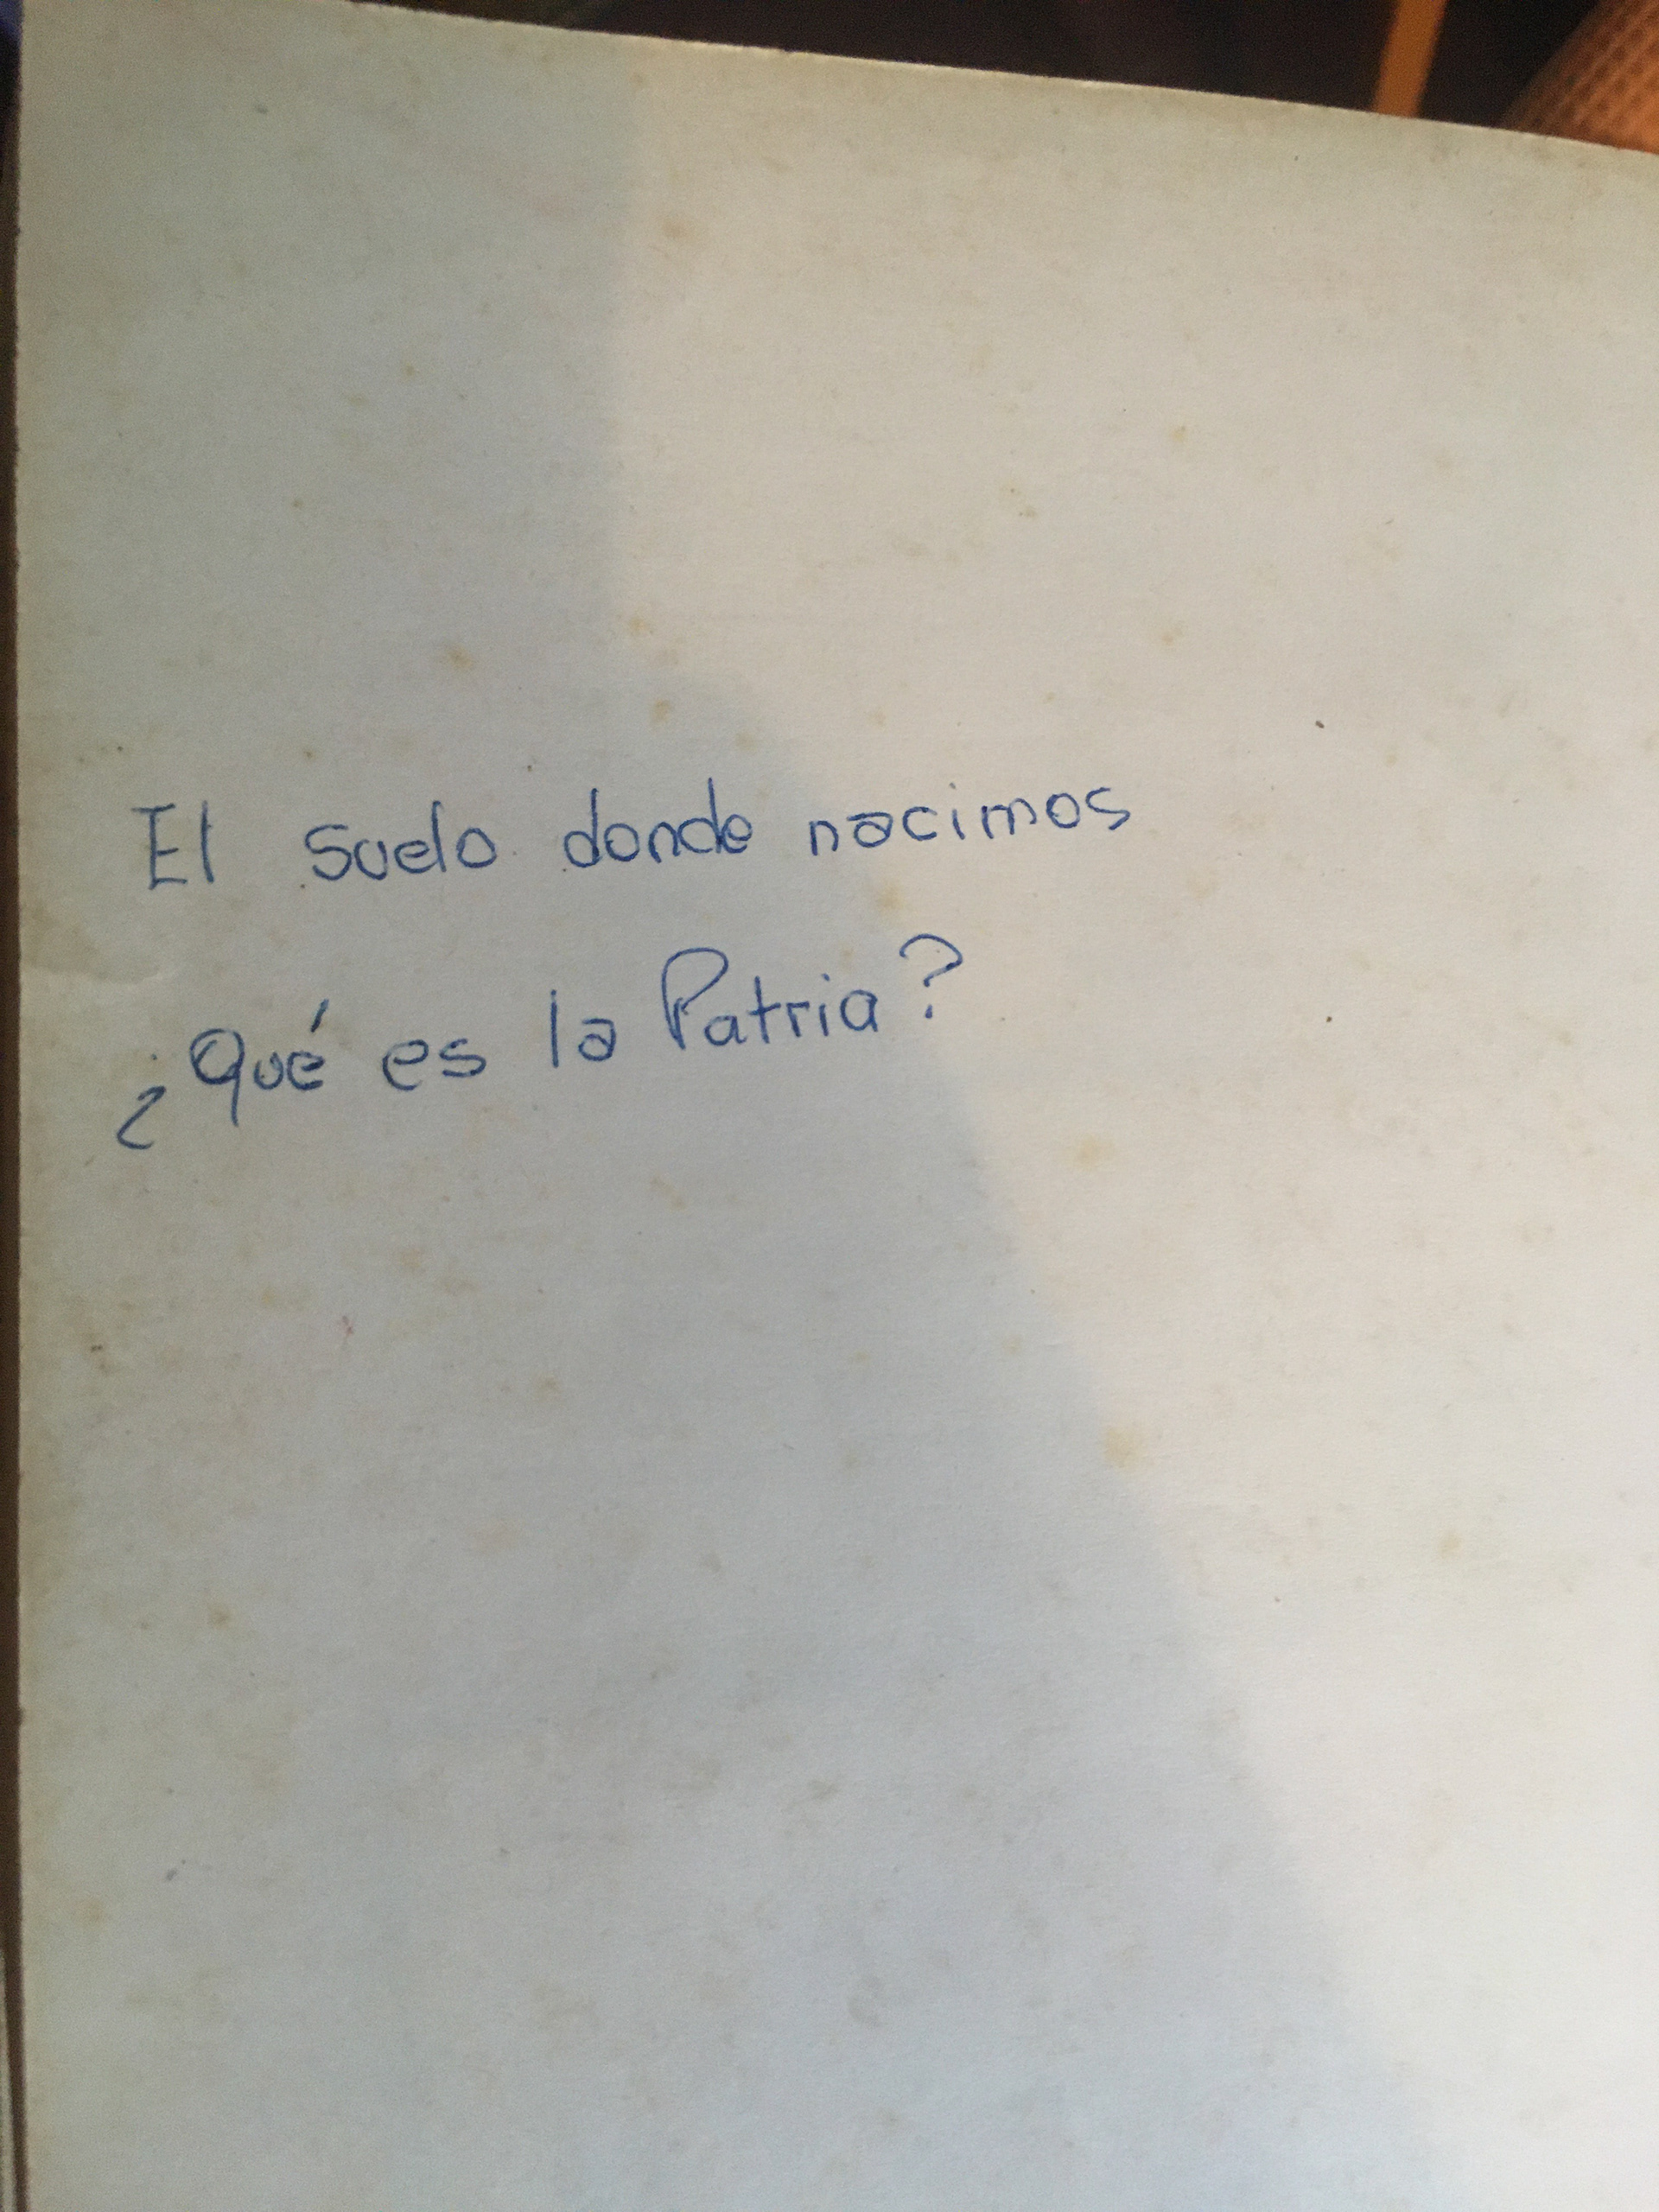 El suelo donde nacimos
¿Qué es la Patria?